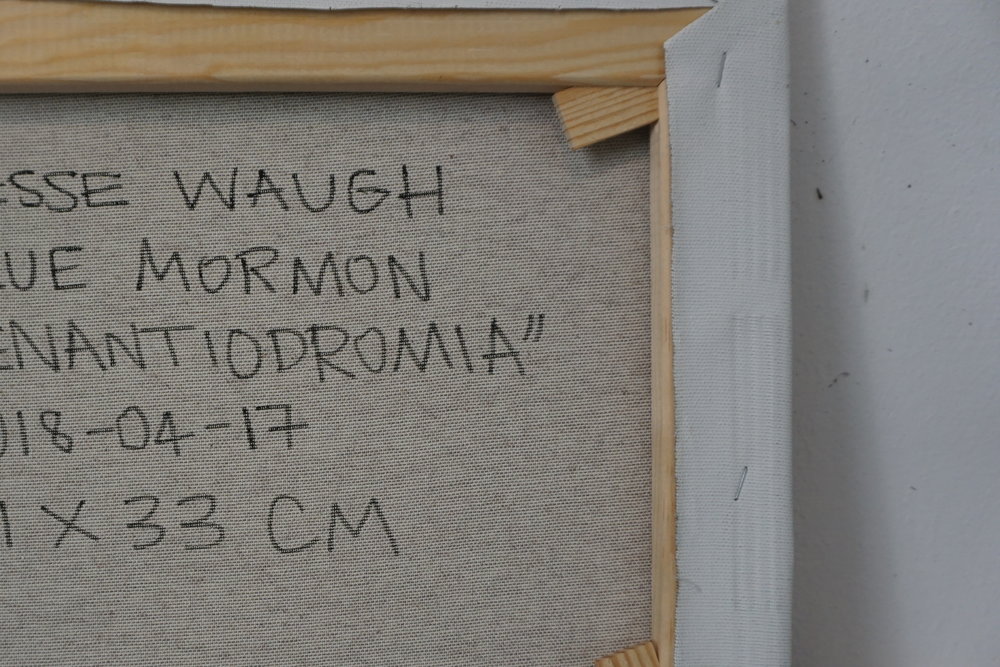 ESSE WAUGH
UE MORMON
ENANTIODROMIA”
018-04-17
X 33 CM